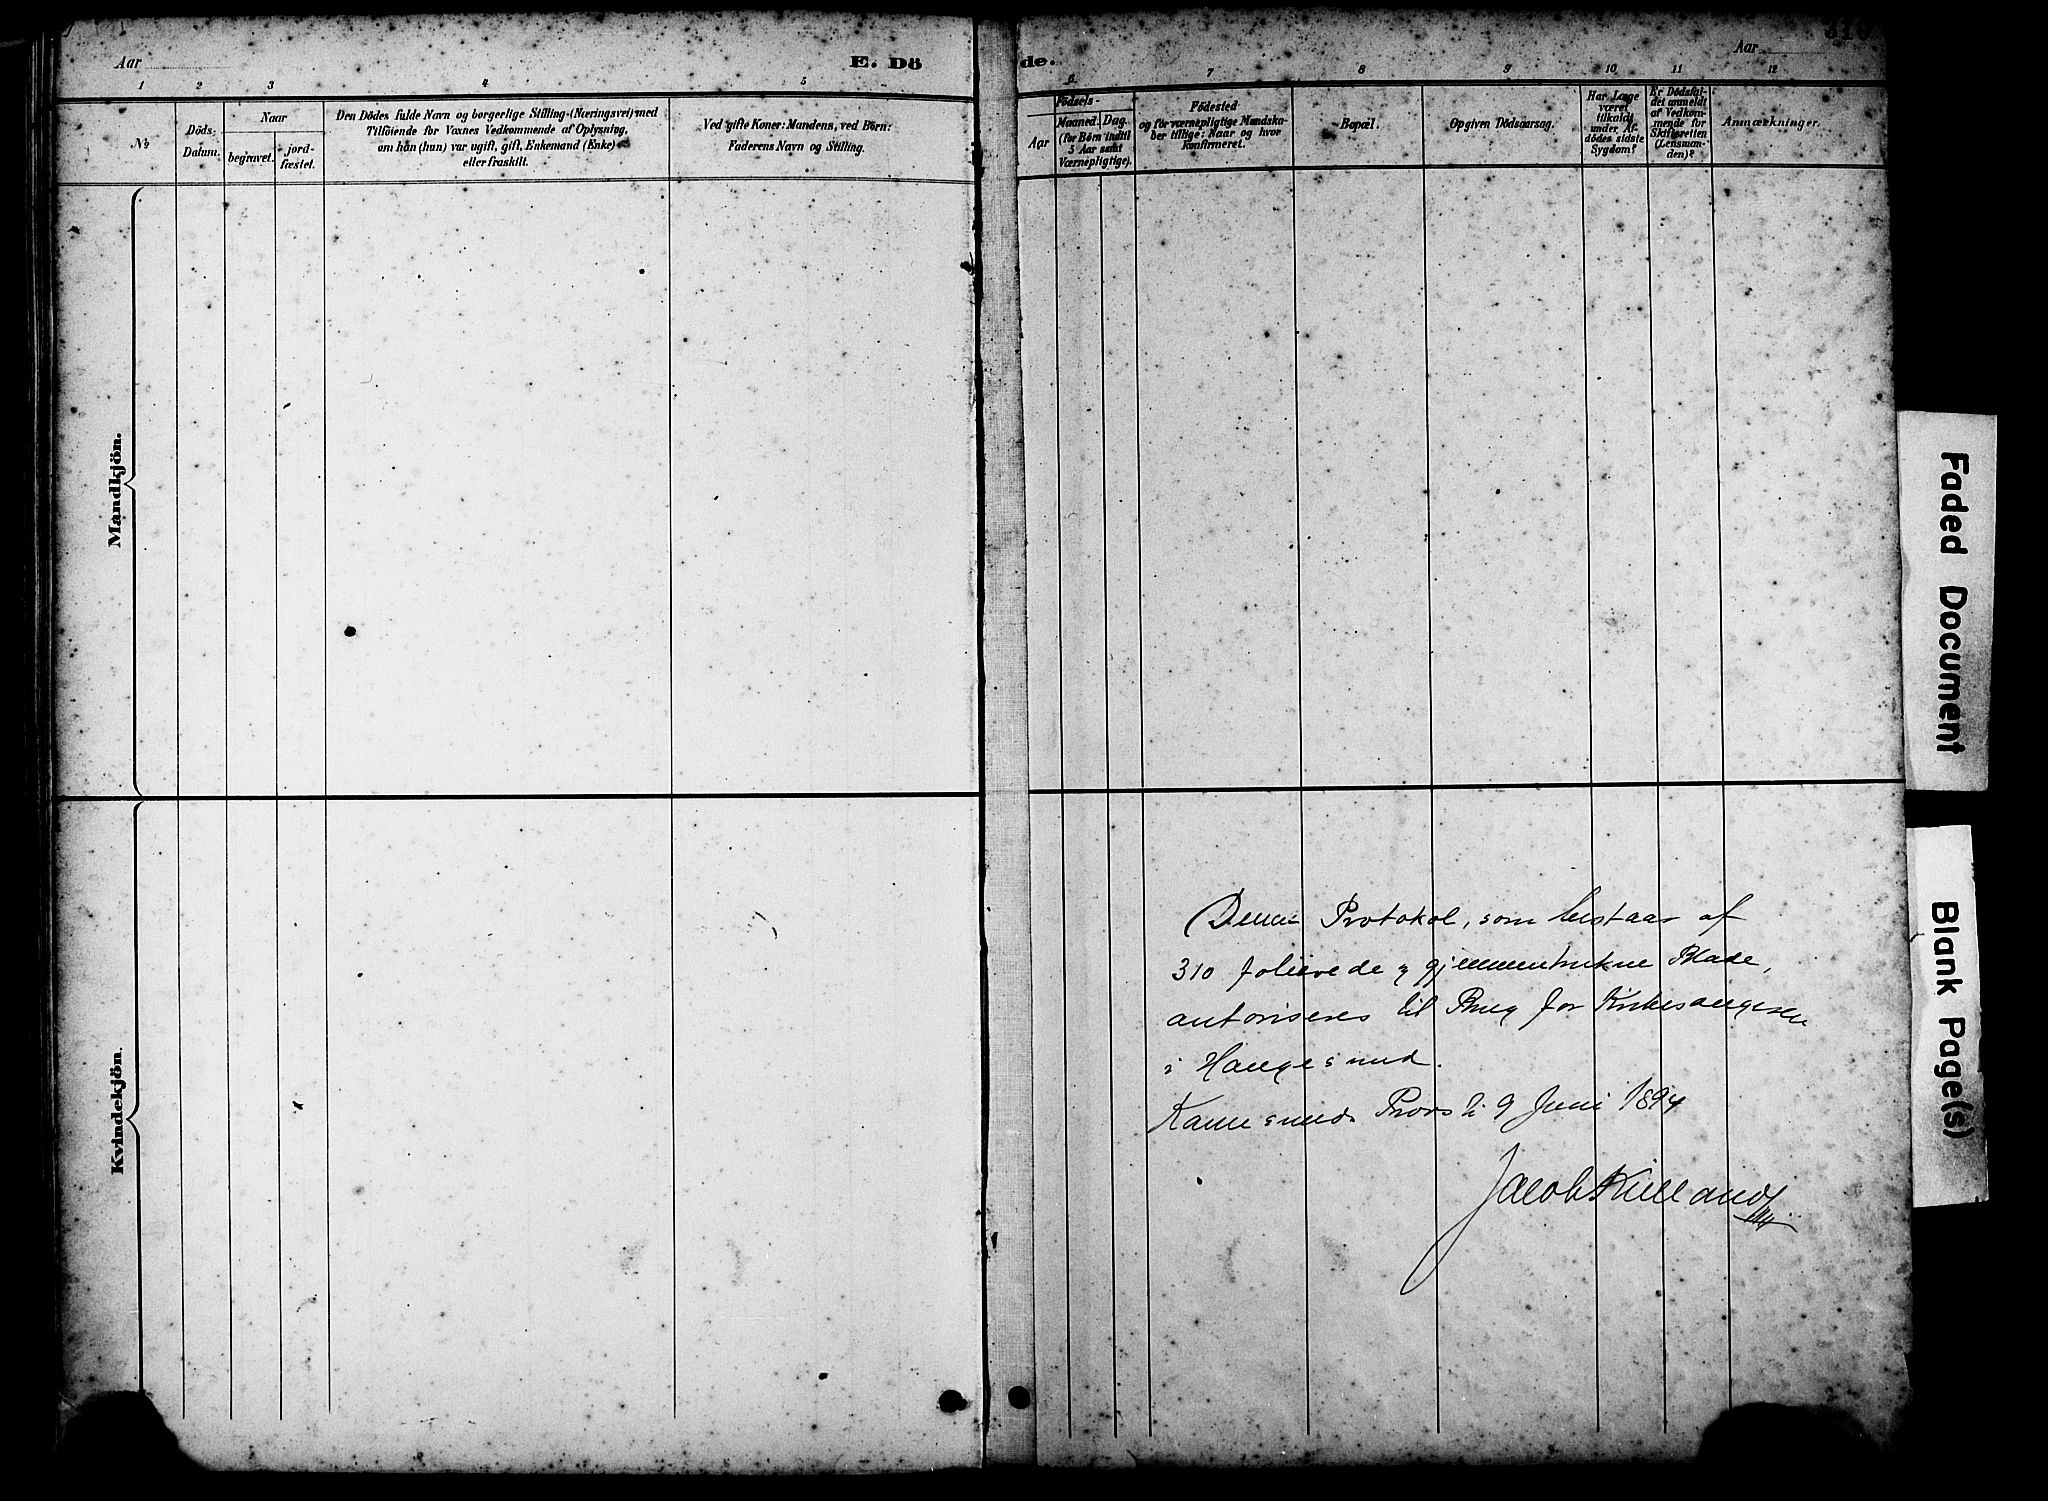 Aar
E. Dö
1 2 3 4 5
No
Döds-
Datum.
Naar
begravet.
jord-
fæstet.
Den Dödes fulde Navn og borgerlige Stilling (Næringsvei) med
Tilföiende for Voxnes Vedkommende af Oplysning,
om han (hun) var ugift, gift, Enkemand (Enke)
eller fraskilt.
Ved gifte Koner: Mandens, ved Börn:
Faderens Navn og Stilling.
Mandkjön.
Kvindekjön.
de.
Aar
310
6 7 8 9 10 11 12
Födsels-
Aar
Maaned. Dag.
(for Börn indtil
5 Aar samt
Værnepligtige).
Födested
og för værnepligtige Mandska-
ber tillige: Naar og hvor
Konfirmeret.
Bopæl.
Opgiven Dödsaarsag.
Har Læge
været
tilkaldt
under Af-
dödes sidste
Sygdom?
Er Dödsfal-
det anmeldt
af Vedkom-
mende for
Skifteretten
(Lensman-
den)?
Anmærkninger.
Denne Protokol, som bestaar af
310 folierede og gjennemtrukne Blade,
autoriseres til Brug for Kirkesangeren
i Haugesund.
Karmsunds Provsti 9 Juni 1894
Jacob Kielland
Faded Document
Blank Page(s)